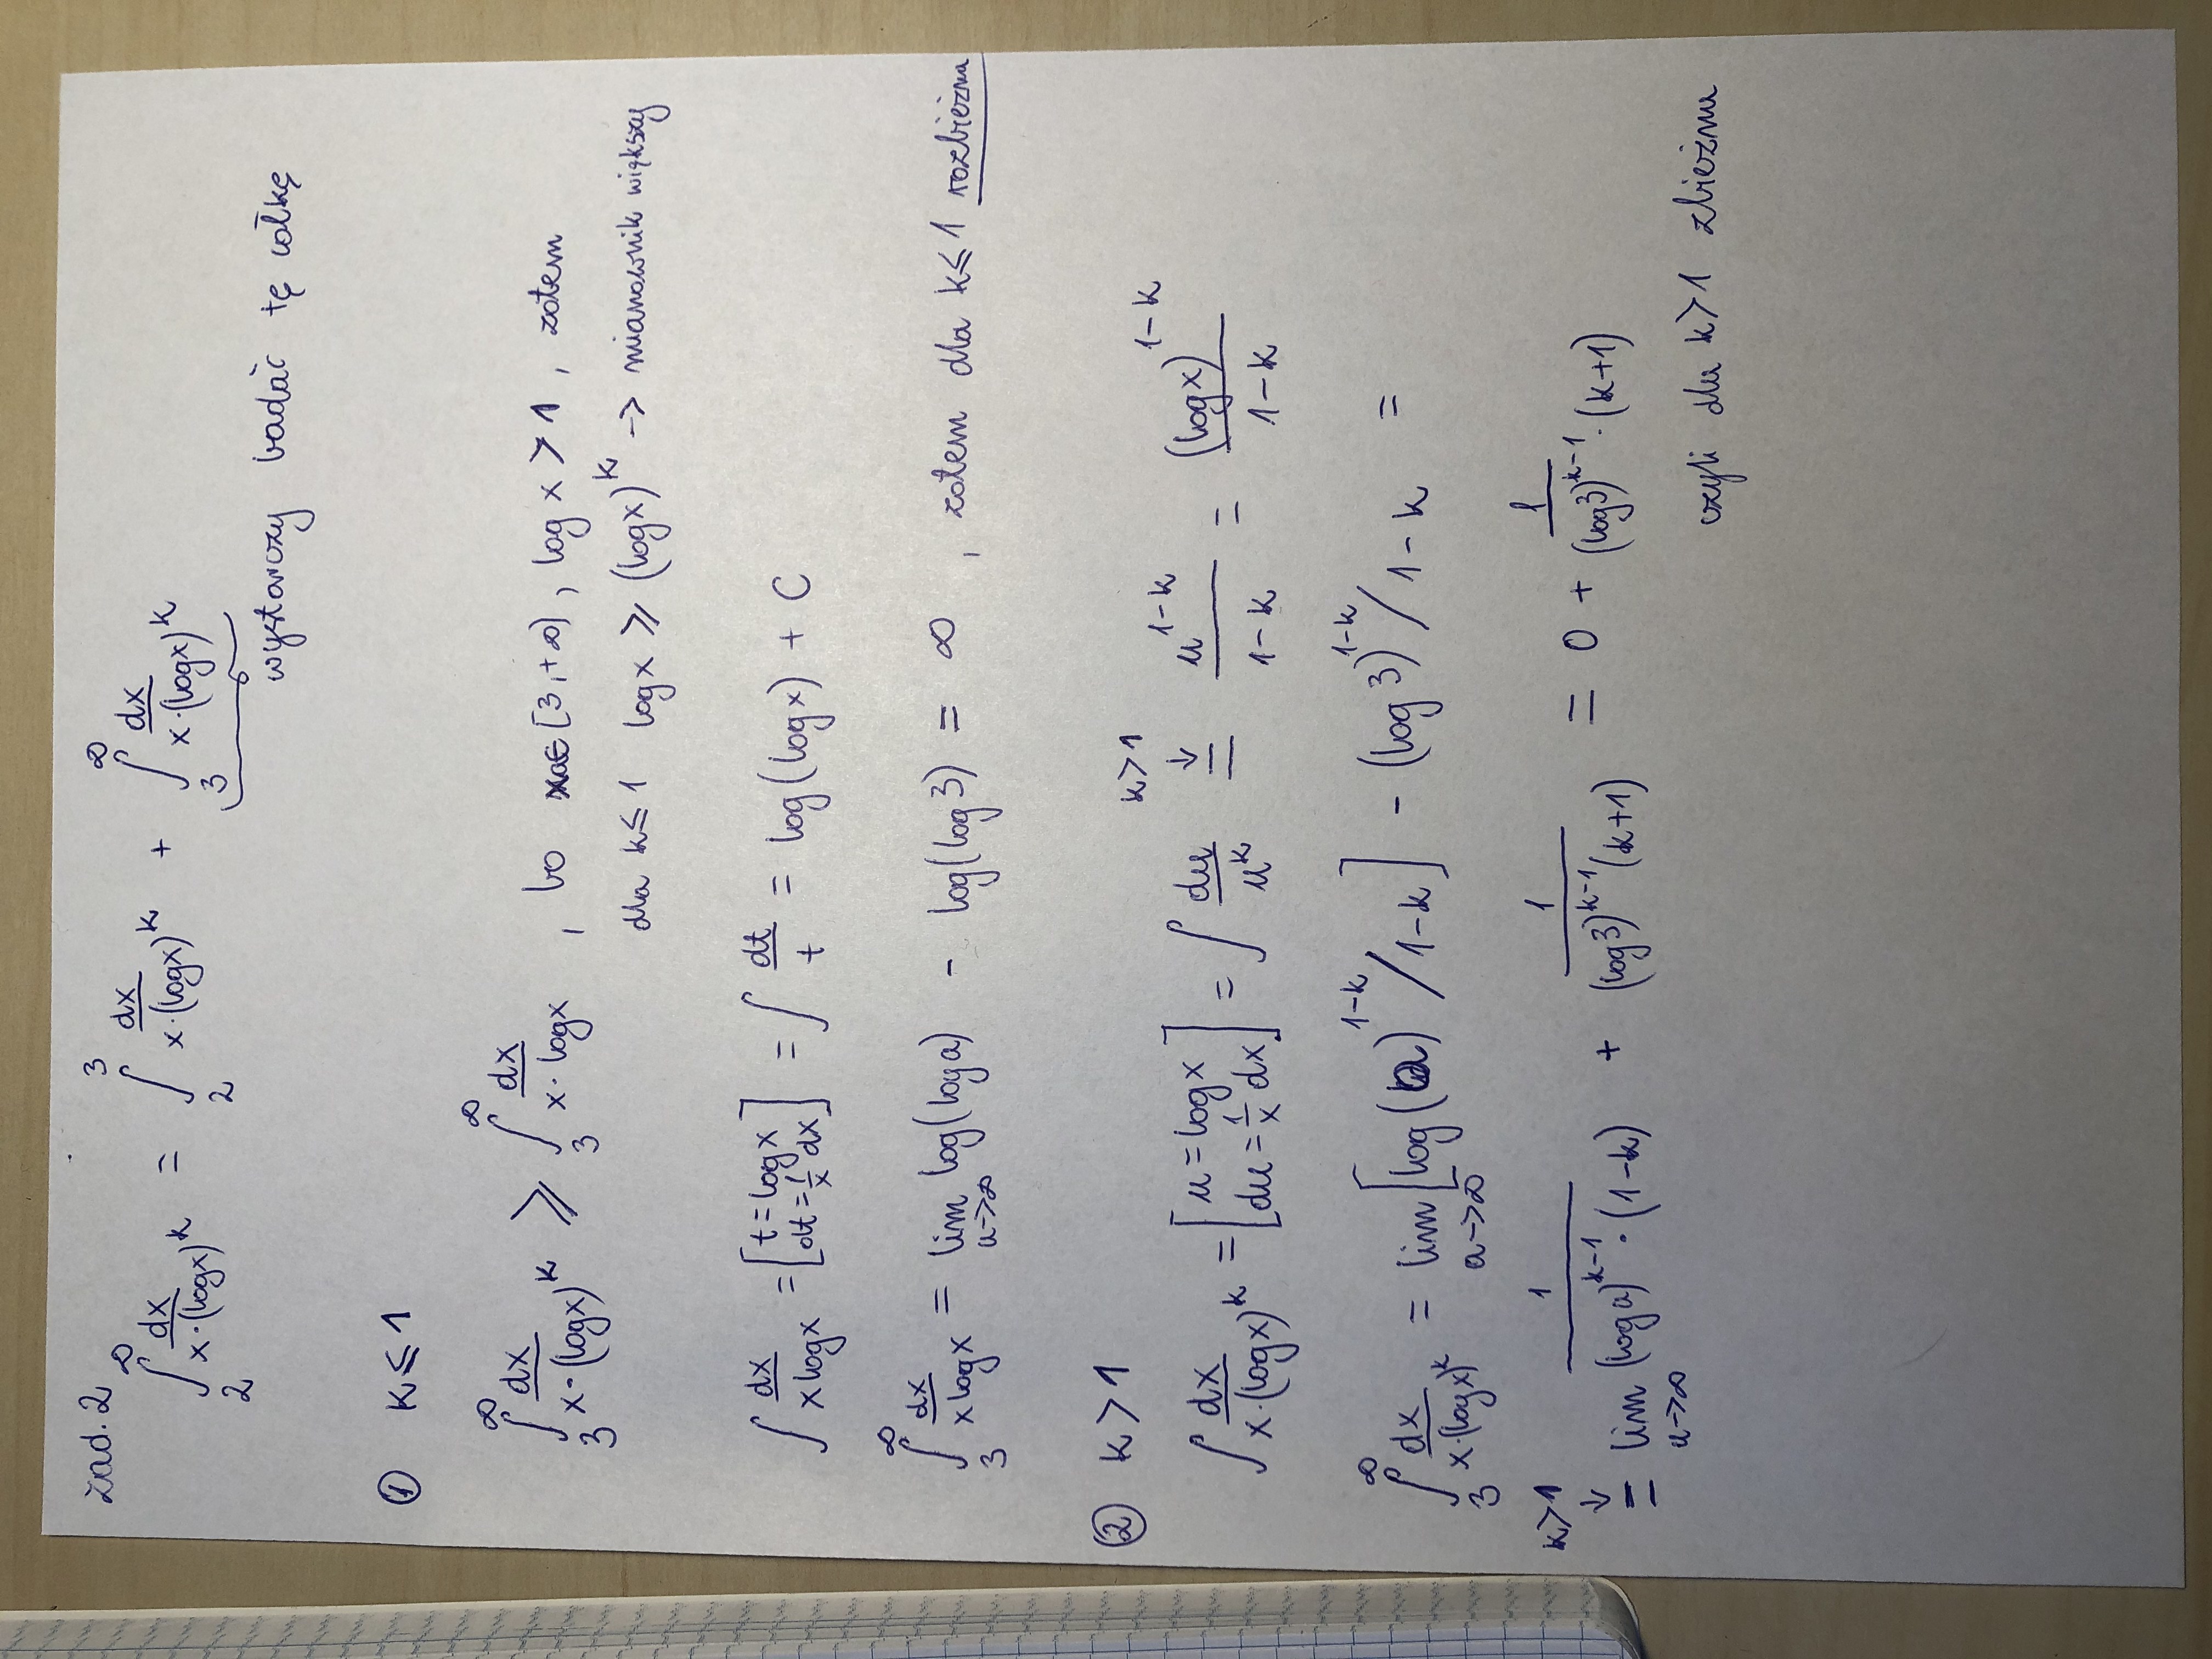 zad. 2
∫_2^∞ dx/(x·(logx)^k) = ∫_2^3 dx/(x·(logx)^k) + ∫_3^∞ dx/(x·(logx)^k)
wystarczy badać tę całkę
① k ≤ 1
∫_3^∞ dx/(x·(logx)^k) ⩾ ∫_3^∞ dx/(x·logx) , bo x∈[3,+∞), log x > 1, zatem
dla k ≤ 1 logx ⩾ (logx)^k -> mianownik większy
∫ dx/(x logx) = [t = logx dt = 1/x dx] = ∫ dt/t = log(logx) + C
∫_3^∞ dx/(x logx) = lim_{a->∞} log(log a) - log(log 3) = ∞ , zatem dla k ≤ 1 rozbieżna
② k > 1
∫ dx/(x·(logx)^k) = [u = logx du = 1/x dx] = ∫ du/u^k =(k>1 ↓) u^{1-k}/(1-k) = (logx)^{1-k}/(1-k)
∫_3^∞ dx/(x·(logx)^k) = lim_{a->∞} [log(a)^{1-k} / 1-k] - (log 3)^{1-k} / 1-k =
k>1 ↓ = lim_{a->∞} 1/((log a)^{k-1}·(1-k)) + 1/((log3)^{k-1}(k+1)) = 0 + 1/((log3)^{k-1}·(k+1))
czyli dla k>1 zbieżna